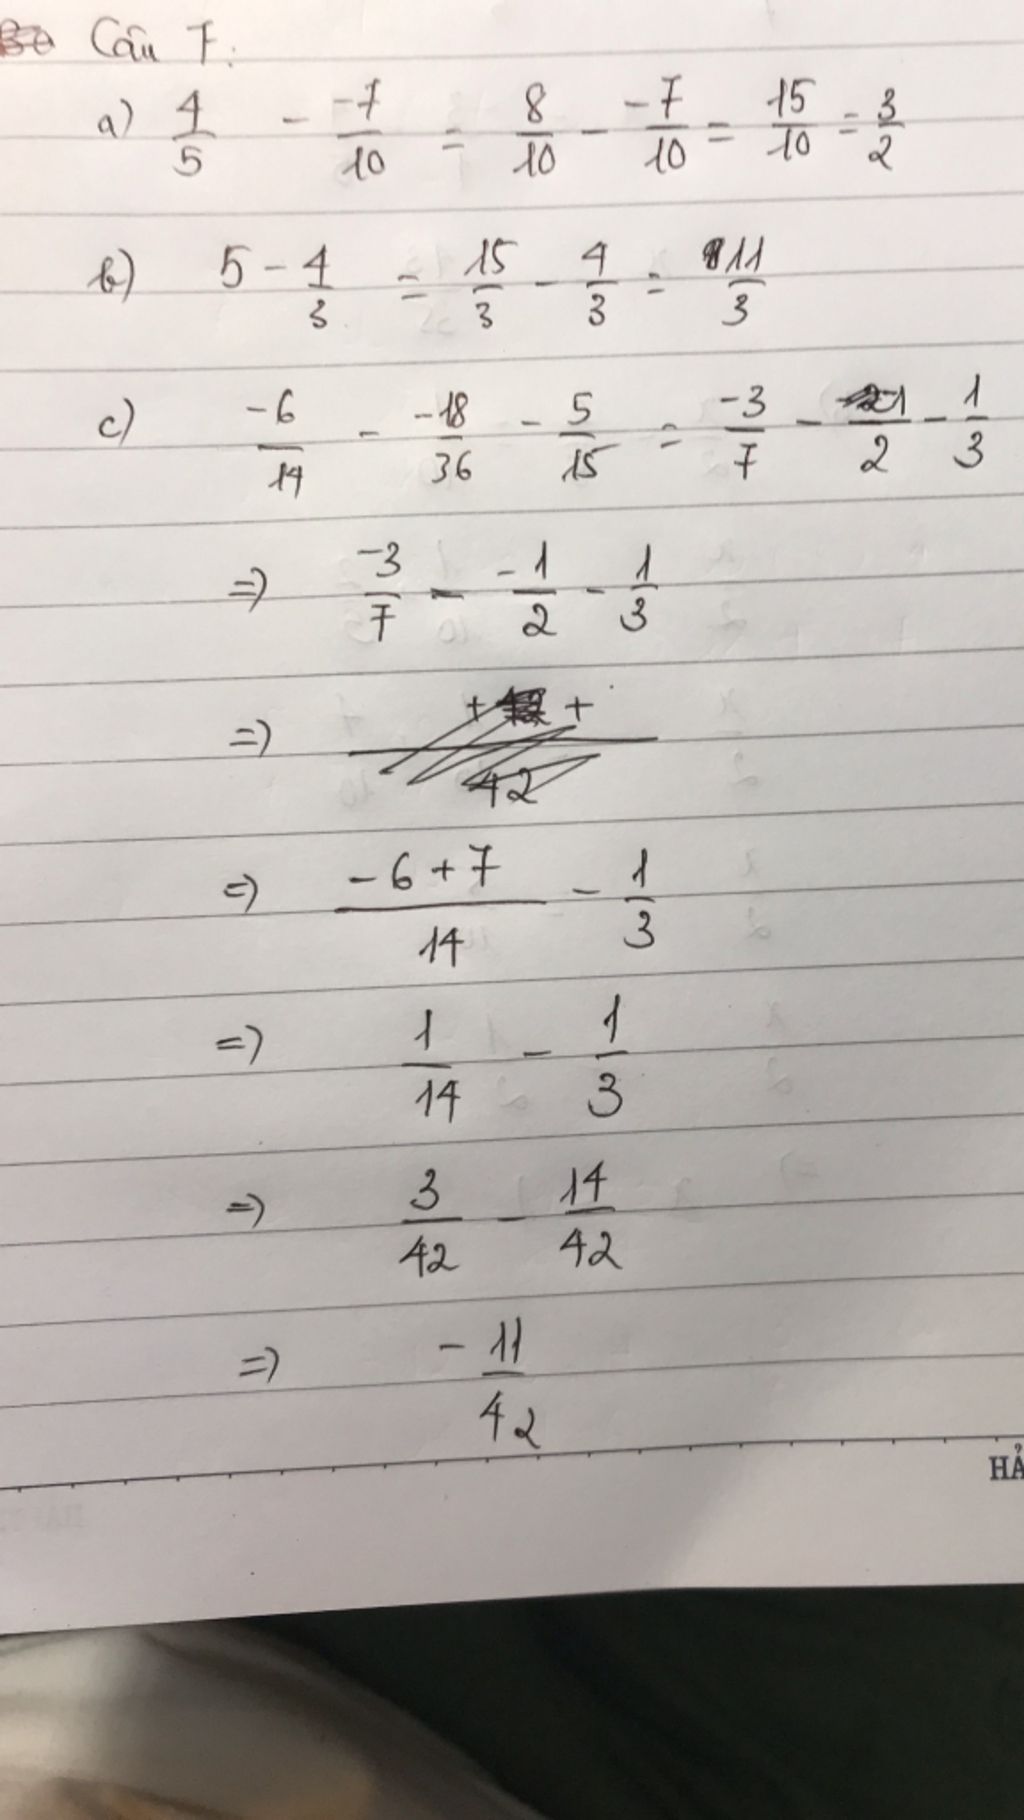 Câu 7:
a) 4/5 - -7/10 = 8/10 - -7/10 = 15/10 = 3/2
b) 5 - 4/3 = 15/3 - 4/3 = 11/3
c) -6/14 - -18/36 - 5/15 = -3/7 - -1/2 - 1/3
=> -3/7 - -1/2 - 1/3
=> + + / 42
=> -6+7/14 - 1/3
=> 1/14 - 1/3
=> 3/42 - 14/42
=> -11/42
HẢ